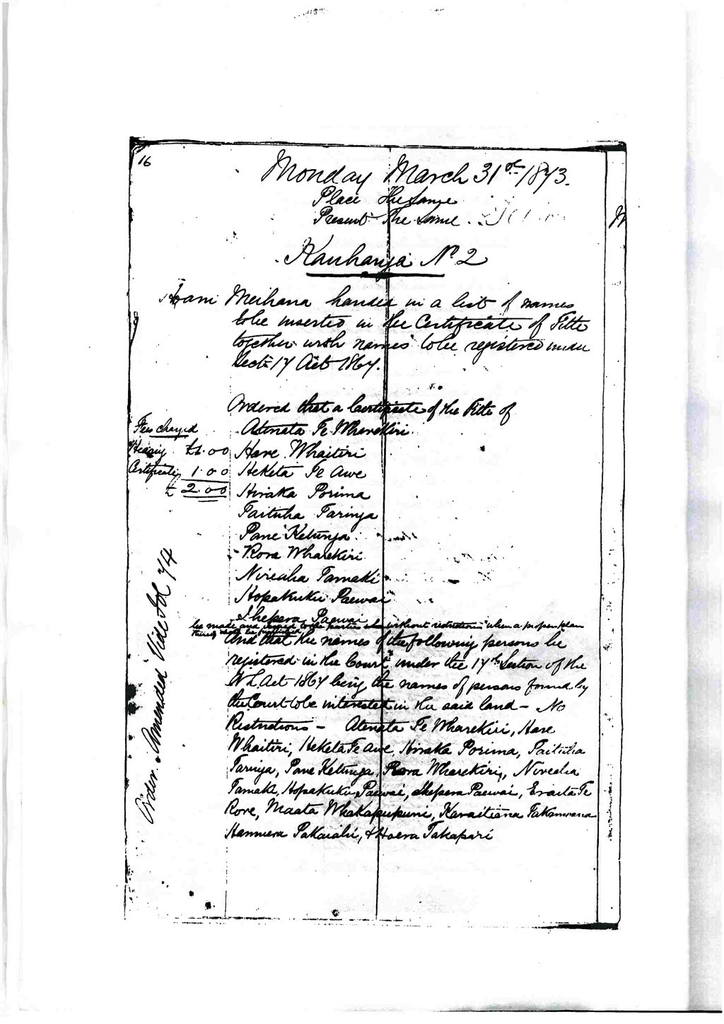 16
Monday March 31st 1873.
Place the same
Present the same
Kauhanga No 2
Meihana handed in a list of names
to be inserted in the Certificate of Title
together with names to be registered under
Sect. 17 Act 1867.
Ordered that a Certificate of the Title of
Fees charged
Atenata Te Wharekiri
Hearing £1.00
Hare Whaitiri
Certificate 1.00
Heketa Te Awe
£ 2.00
Hiraka Porima
Taituha Taringa
Pane Ketunga
Rora Wharekiri
Nireaha Tamaki
Hopakuku Paewai
Ihepera Paewai
be made and issued to the parties without restriction when a proper plan
and that the names of the following persons be
registered in the Court under the 17th Section of the
N L Act 1867 being the names of persons found by
the Court to be interested in the said land – No
Restrictions – Atenata Te Wharekiri, Hare
Whaitiri, Heketa Te Awe, Hiraka Porima, Taituha
Taringa, Pane Ketunga, Rora Wharekiri, Nireaha
Tamaki, Hopakuku Paewai, Ihepera Paewai, Eraita Te
Rore, Maata Whakapukuni, Karaitiana Takamoana
Hamuera Pakaiahi, & Hoera Takapari
Order Amended Vide Fol 74